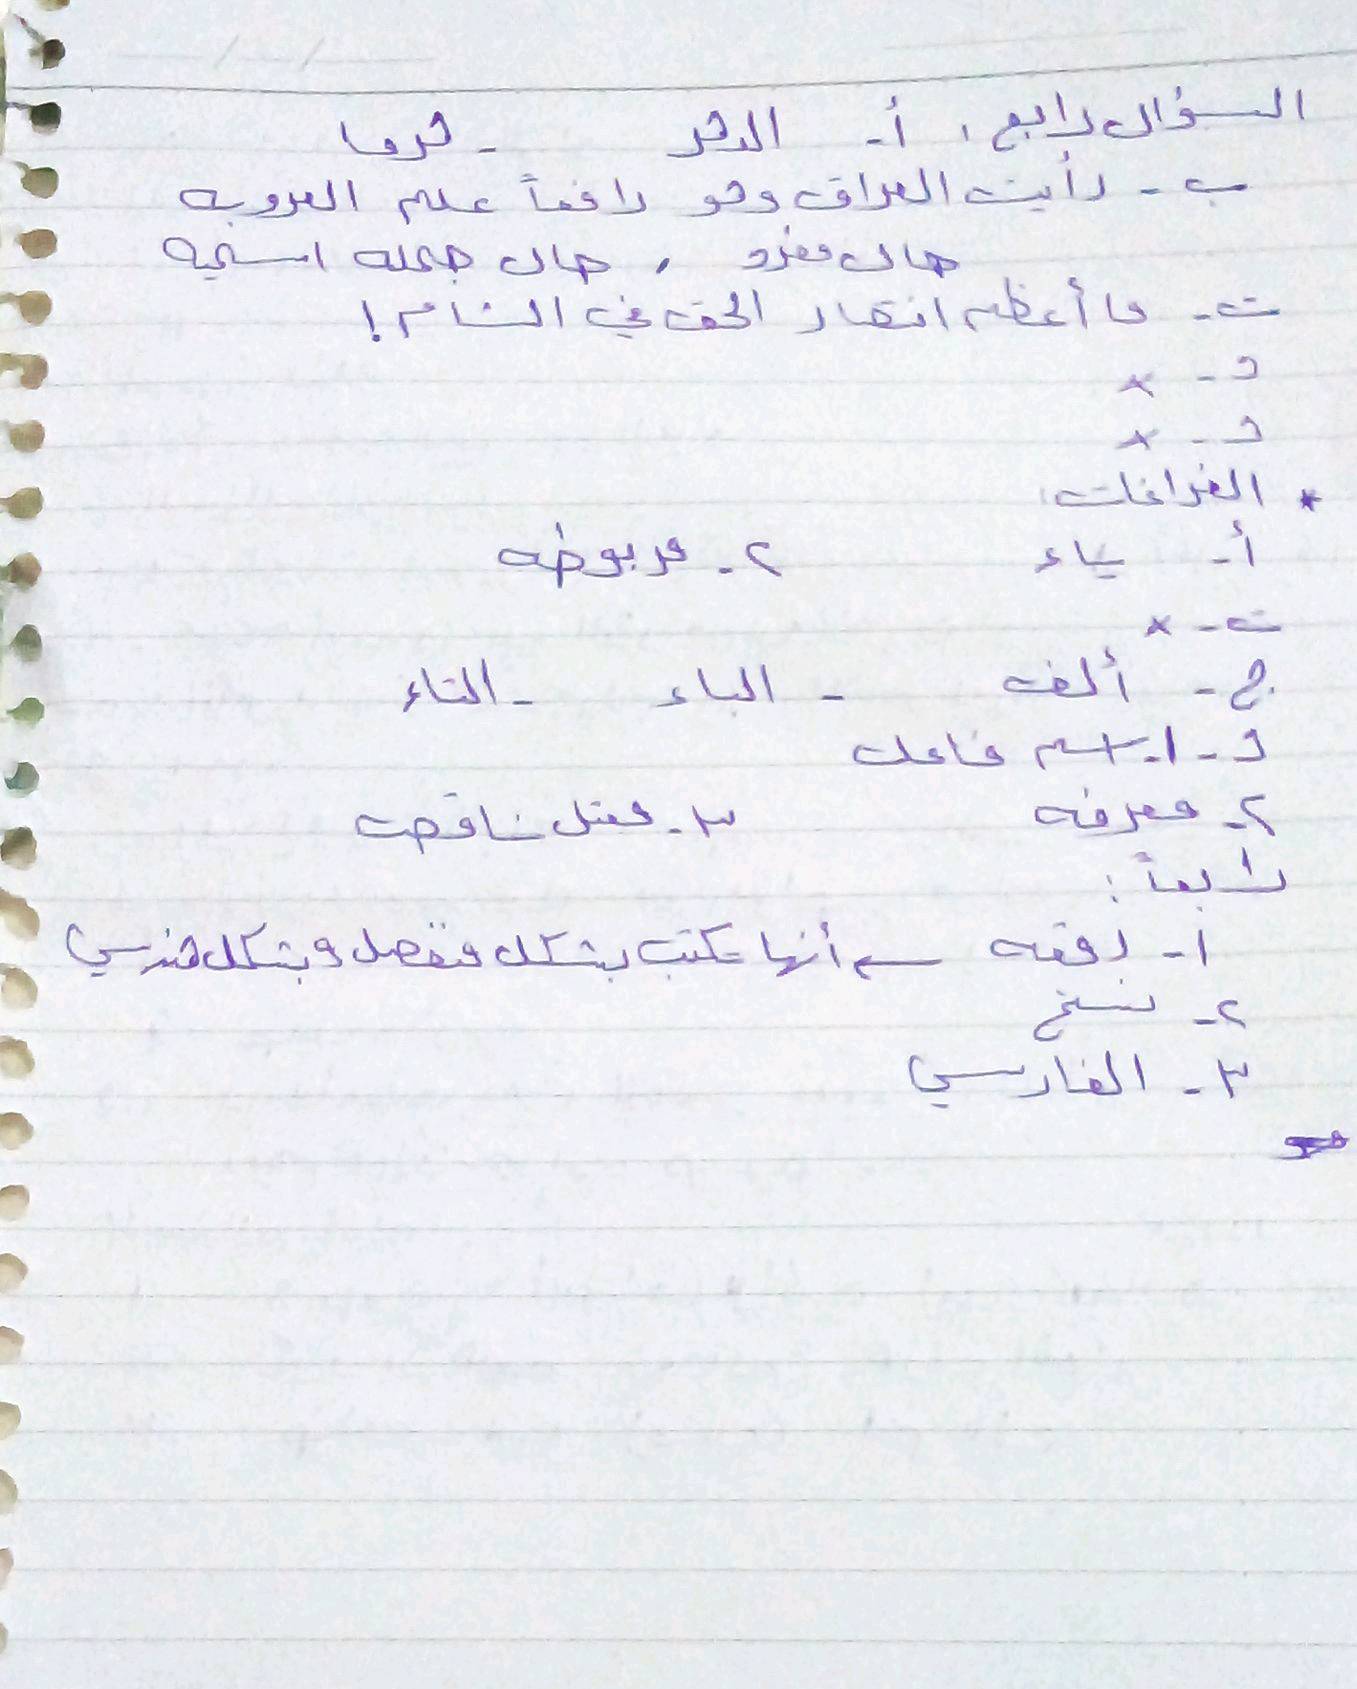 السؤال رابع: أ- الدهر - كرما
ب- رأيت العراق وهو رافعاً علم العروبه
حال مفرد ، حال جمله اسميه
ت- ما أعظم انتصار الحق في الشام!
د- ×
د- ×
* الفراغات:
أ- ياء ٢- مربوطه
ت- ×
ج- ألف - الباء - التاء
د- ١- اسم فاعل
٢- معرفه ٣- معتل ناقص
رابعاً:
أ- رقعه أنها تكتب بشكل منفصل وبشكل هندسي
٢- نسخ
٣- الفارسي